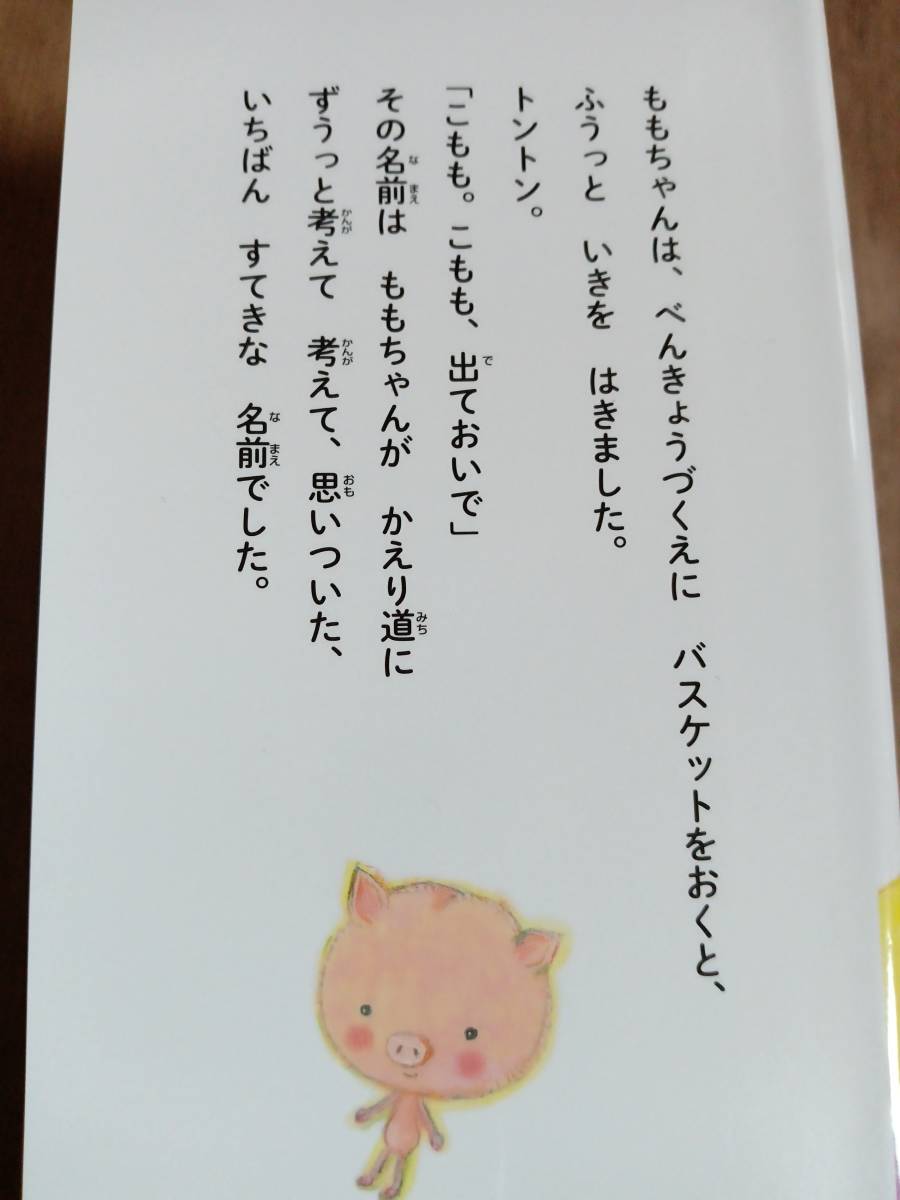 ももちゃんは、べんきょうづくえに　バスケットをおくと、
ふうっと　いきを　はきました。
トントン。
「こもも。こもも、出ておいで」
その名前は　ももちゃんが　かえり道に
ずうっと考えて　考えて、思いついた、
いちばん　すてきな　名前でした。